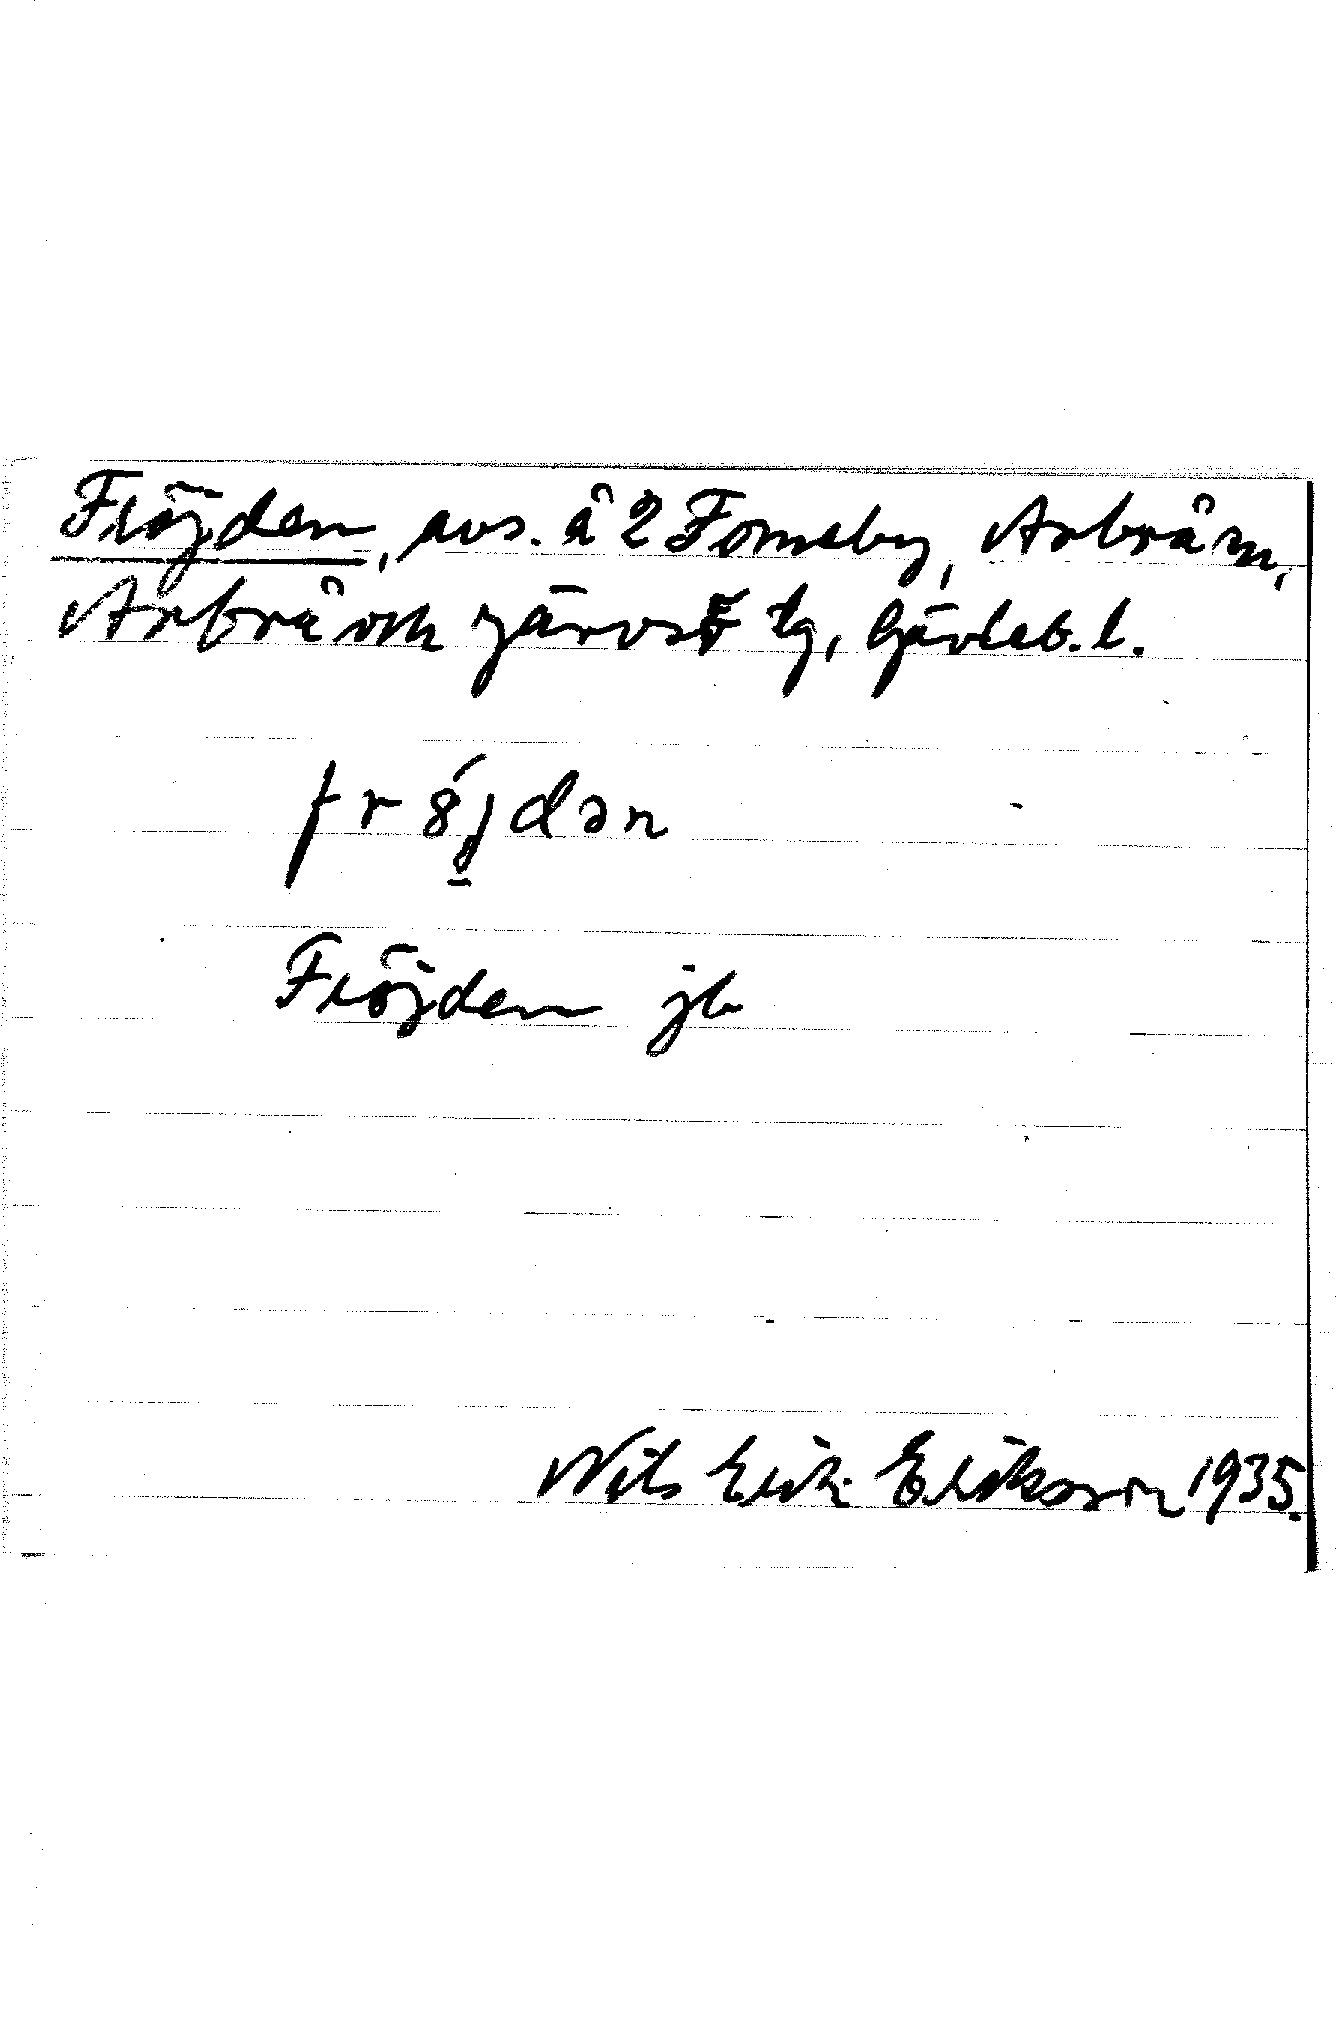 Fröjden, avs. å 2 Forneby, Arbrå sn,
Arbrå och Järvsö tg, Gävleb. l.
fr8́jdən
Fröjden jb
Nils Erik Eriksson 1935.